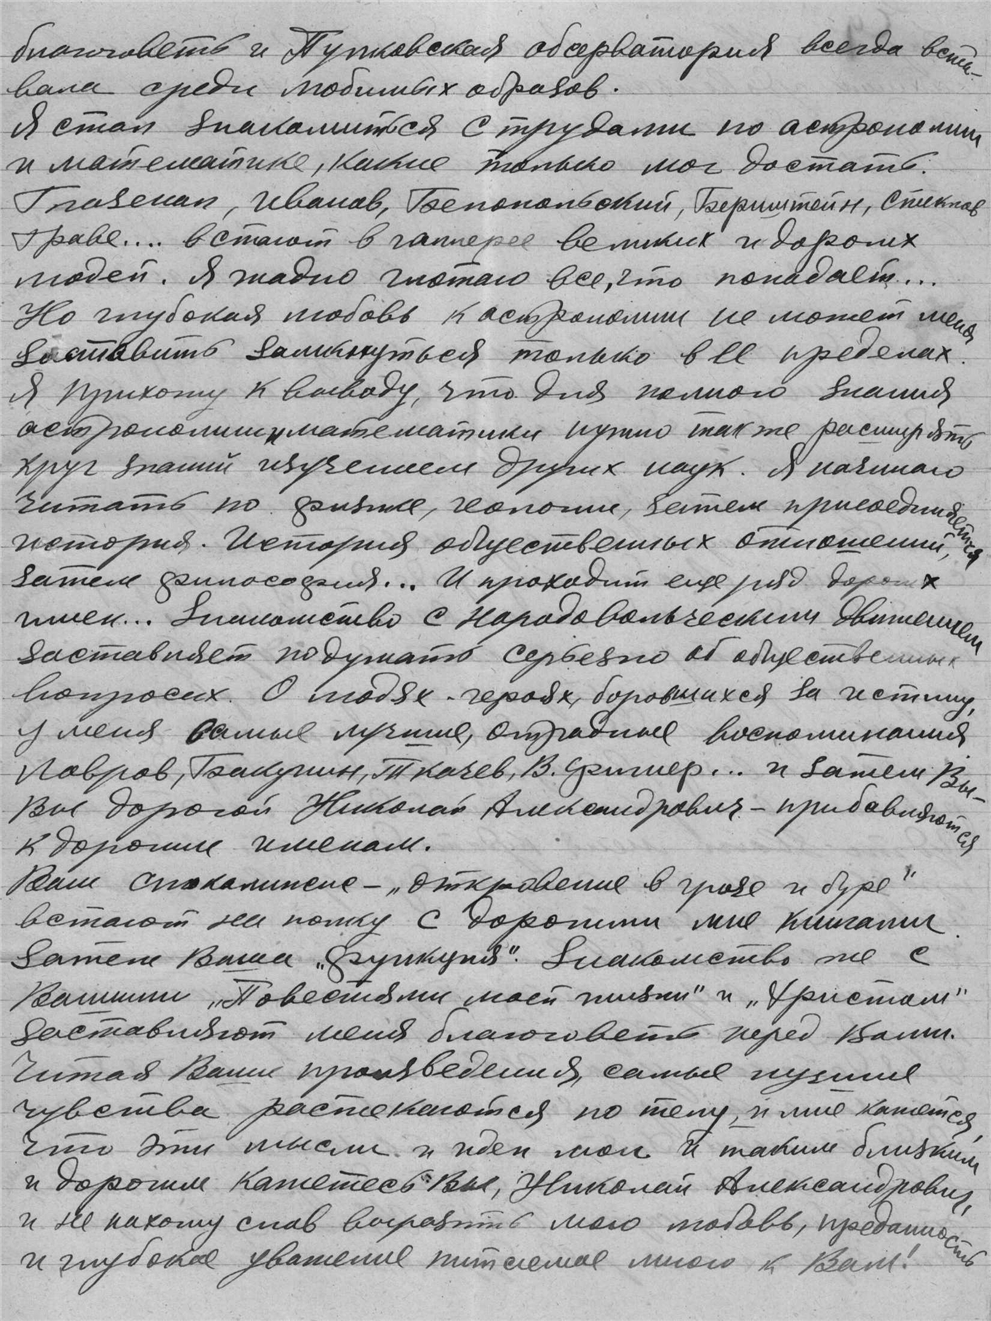 благоговеть и Пулковская обсерватория всегда вста-
вала среди любимых образов.
Я стал знакомиться с трудами по астрономии
и математике, какие только мог достать.
Глазенап, Иванов, Белопольский, Бернштейн, Стеклов
Граве.... встают в галлерее великих и дорогих
людей. Я жадно глотаю все, что попадает...
Но глубокая любовь к астрономии не может меня
заставить замкнуться только в ее пределах.
Я прихожу к выводу, что для полного знания
астрономии и математики нужно также расширять
круг знаний изучением других наук. Я начинаю
читать по физике, геологии, затем присоединяется
история. История общественных отношений,
затем философия... И проходит еще ряд дорогих
имен... Знакомство с народовольческим движением
заставляет подумать серьезно об общественных
вопросах. О людях-героях, боровшихся за истину,
у меня самые лучшие, отрадные воспоминания
Лавров, Бакунин, Ткачев, В. Фигнер... и затем Вы-
Вы дорогой Николай Александрович - прибавляются
к дорогим именам.
Ваш Апокалипсис - „откровение в грозе и буре"
встают на полку с дорогими мне книгами.
Затем Ваша „Функция". Знакомство же с
Вашими „Повестями моей жизни" и „Христом"
заставляют меня благоговеть перед Вами.
Читая Ваши произведения, самые лучшие
чувства растекаются по телу, и мне кажется,
что эти мысли и идеи мои. И таким близким
и дорогим кажетесь Вы, Николай Александрович,
и не нахожу слов выразить мою любовь, преданность
и глубокое уважение питаемое мною к Вам!